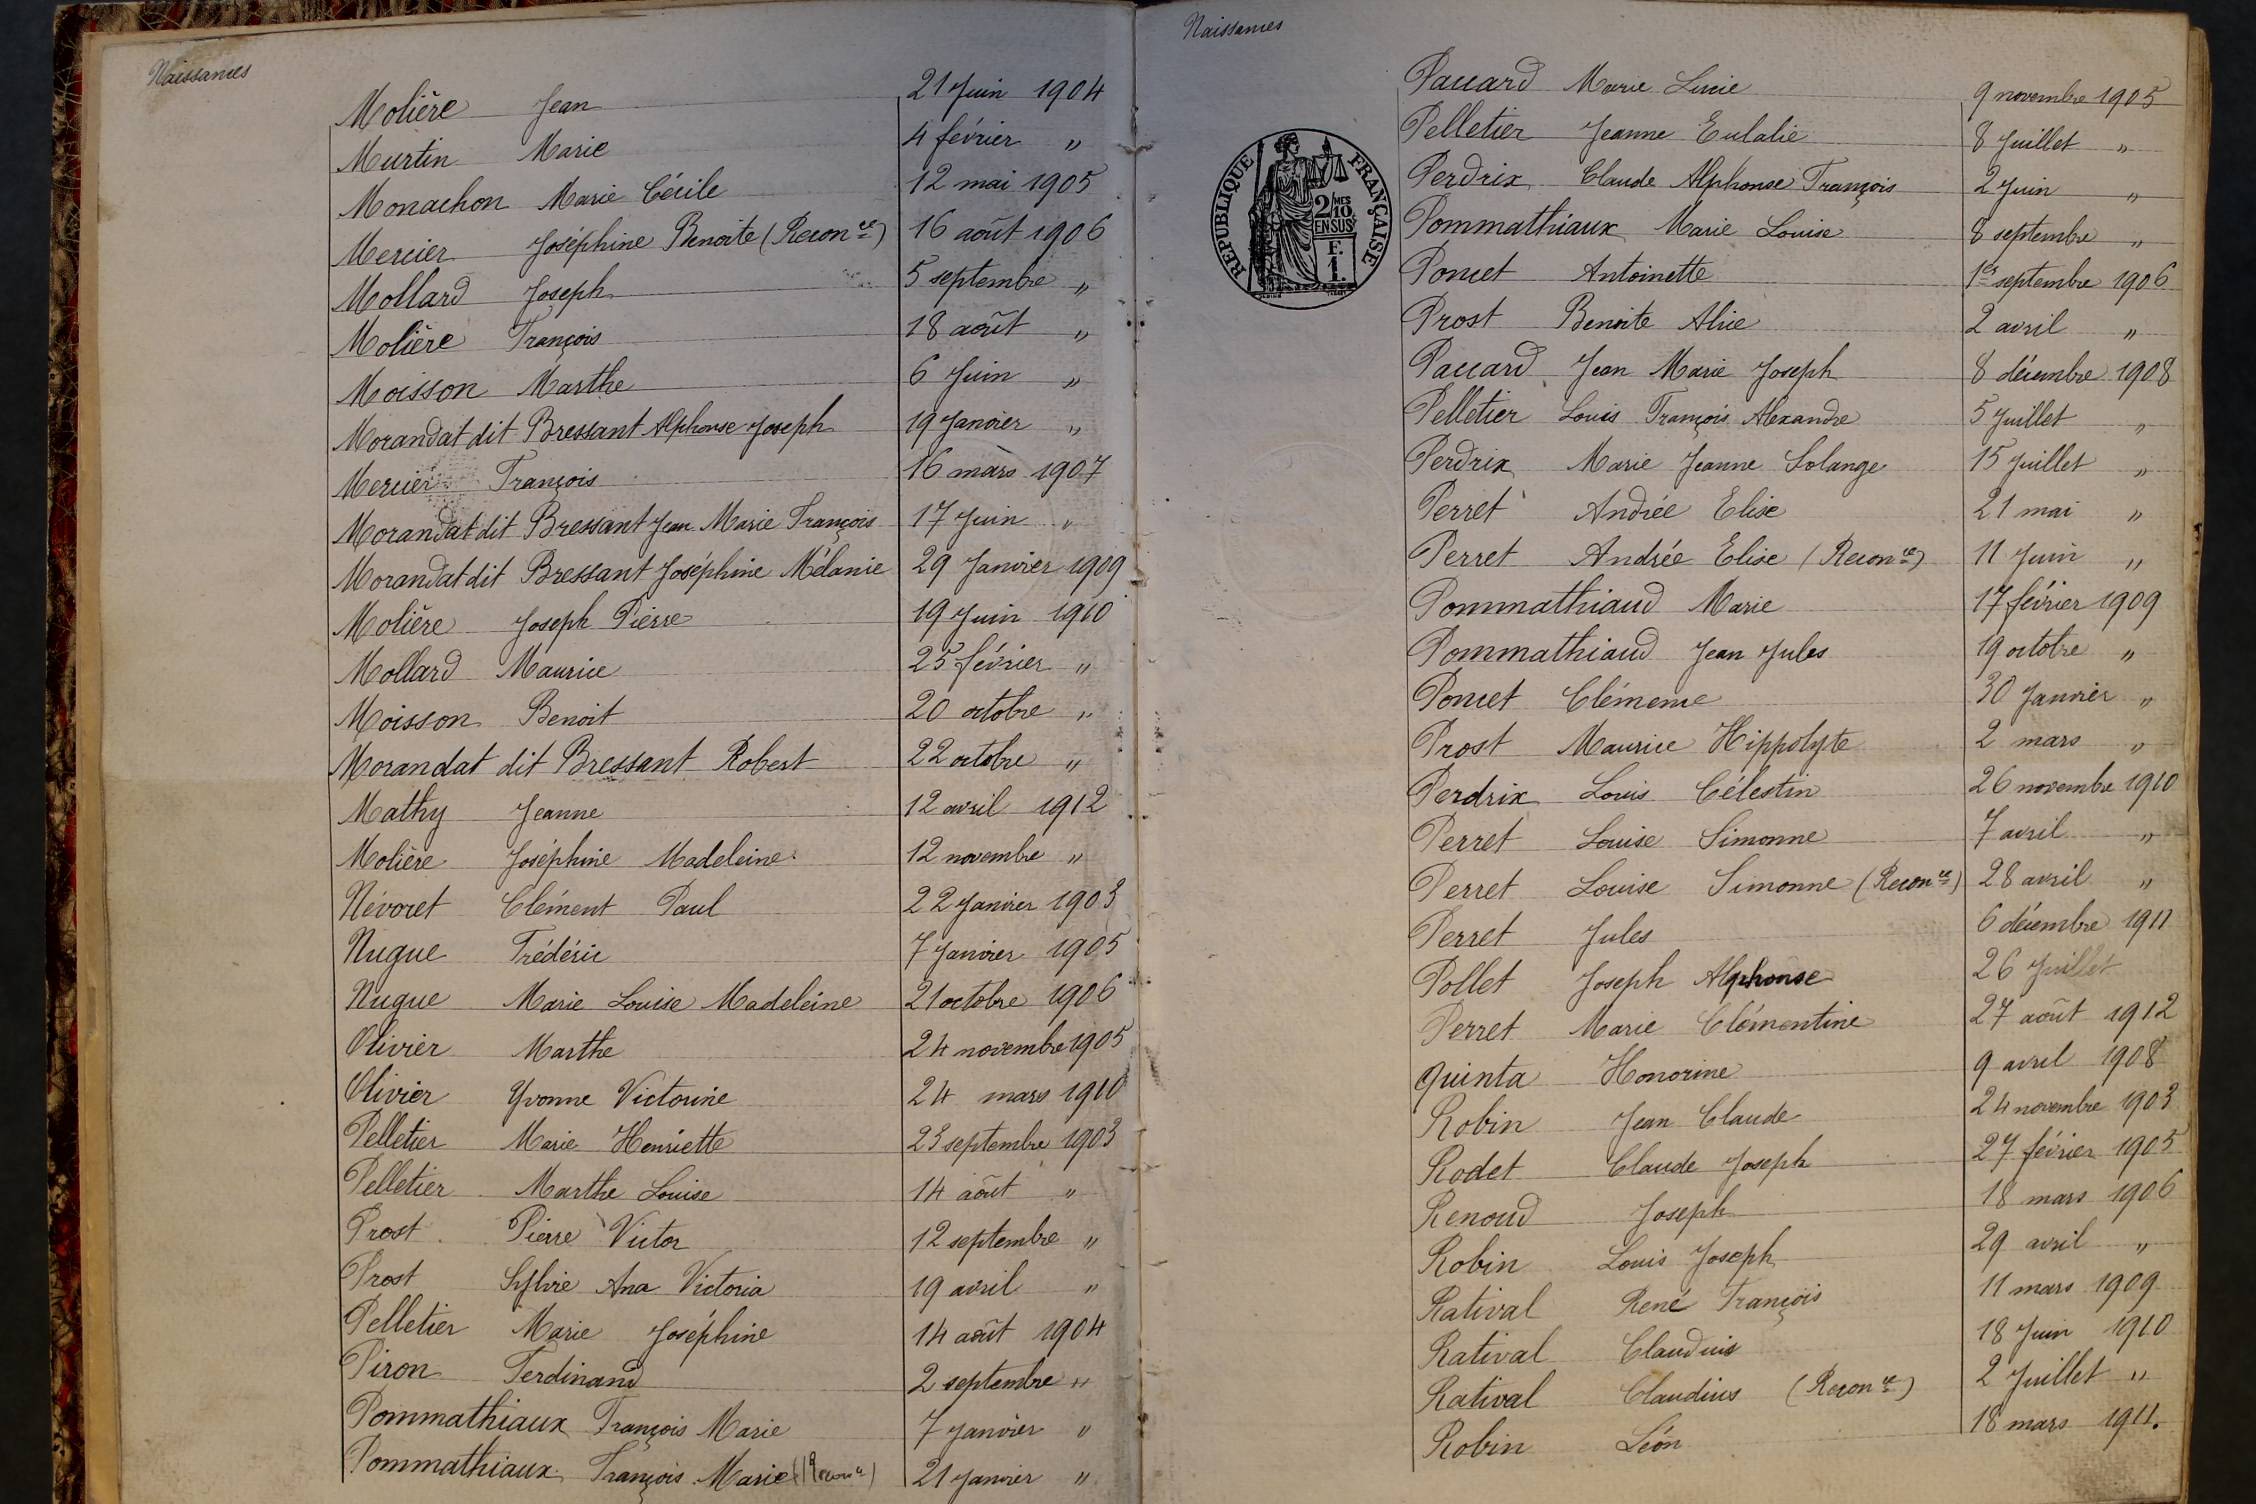 Naissances
Molière Jean 21 Juin 1904
Murtin Marie 4 février "
Monachon Marie Cécile 12 mai 1905
Mercier Joséphine Benoite (Reconce) 16 août 1906
Mollard Joseph 5 septembre "
Molière François 18 août "
Moisson Marthe 6 Juin "
Morandat dit Bressant Alphonse Joseph 19 Janvier "
Mercier François 16 mars 1907
Morandat dit Bressant Jean Marie François 17 Juin "
Morandat dit Bressant Joséphine Mélanie 29 Janvier 1909
Molière Joseph Pierre 19 Juin 1910
Mollard Maurice 25 février "
Moisson Benoit 20 octobre "
Morandat dit Bressant Robert 22 octobre "
Mathy Jeanne 12 avril 1912
Molière Joséphine Madeleine 12 novembre "
Névoret Clément Paul 22 Janvier 1903
Nugue Frédéric 7 Janvier 1905
Nugue Marie Louise Madeleine 21 octobre 1906
Olivier Marthe 24 novembre 1905
Olivier Yvonne Victorine 24 mars 1910
Pelletier Marie Henriette 23 septembre 1903
Pelletier Marthe Louise 14 août "
Prost Pierre Victor 12 septembre "
Prost Sylvie Ana Victoria 19 avril "
Pelletier Marie Joséphine 14 août 1904
Piron Ferdinand 2 septembre "
Pommathiaux François Marie 7 Janvier "
Pommathiaux François Marie (Reconce) 21 Janvier "
Naissances
RÉPUBLIQUE FRANÇAISE
2/10 MES
EN SUS
F.
1.
Paccard Marie Lucie 9 novembre 1905
Pelletier Jeanne Eulalie 8 Juillet "
Perdrix Claude Alphonse François 2 Juin "
Pommathiaux Marie Louise 8 septembre "
Poncet Antoinette 1er septembre 1906
Prost Benoite Alice 2 avril "
Paccard Jean Marie Joseph 8 décembre 1908
Pelletier Louis François Alexandre 5 Juillet "
Perdrix Marie Jeanne Solange 15 Juillet "
Perret Andrée Elise 21 mai "
Perret Andrée Elise (Reconce) 11 Juin "
Pommathiaud Marie 17 février 1909
Pommathiaud Jean Jules 19 octobre "
Poncet Clémence 30 Janvier "
Prost Maurice Hippolyte 2 mars "
Perdrix Louis Célestin 26 novembre 1910
Perret Louise Simonne 7 avril "
Perret Louise Simonne (Reconce) 28 avril "
Perret Jules 6 décembre 1911
Pollet Joseph Alphonse 26 Juillet
Perret Marie Clémentine 27 août 1912
Quinta Honorine 9 avril 1908
Robin Jean Claude 24 novembre 1903
Rodet Claude Joseph 27 février 1905
Renoud Joseph 18 mars 1906
Robin Louis Joseph 29 avril "
Ratival René François 11 mars 1909
Ratival Claudius 18 Juin 1910
Ratival Claudius (Reconce) 2 Juillet "
Robin Léon 18 mars 1911.